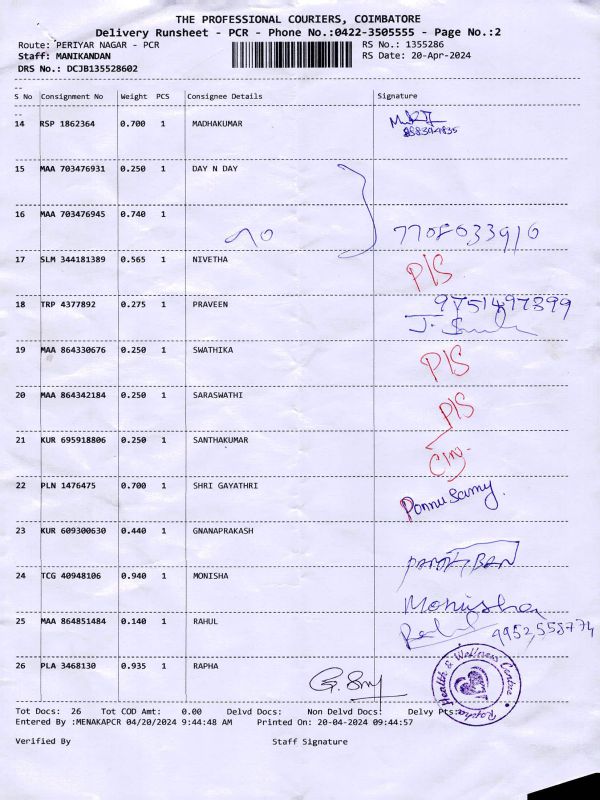 THE PROFESSIONAL COURIERS, COIMBATORE
Delivery Runsheet - PCR - Phone No.:0422-3505555 - Page No.:2
Route: PERIYAR NAGAR - PCR RS No.: 1355286
Staff: MANIKANDAN RS Date: 20-Apr-2024
DRS No.: DCJB135528602
S No Consignment No Weight PCS Consignee Details Signature
14 RSP 1862364 0.700 1 MADHAKUMAR
15 MAA 703476931 0.250 1 DAY N DAY
16 MAA 703476945 0.740 1
7708033910
17 SLM 344181389 0.565 1 NIVETHA P/S
18 TRP 4377892 0.275 1 PRAVEEN 9751497399
19 MAA 864330676 0.250 1 SWATHIKA P/S
20 MAA 864342184 0.250 1 SARASWATHI P/S
21 KUR 695918806 0.250 1 SANTHAKUMAR
22 PLN 1476475 0.700 1 SHRI GAYATHRI Ponnusamy.
23 KUR 609300630 0.440 1 GNANAPRAKASH
24 TCG 40948106 0.940 1 MONISHA Monisha
25 MAA 864851484 0.140 1 RAHUL 9952558774
26 PLA 3468130 0.935 1 RAPHA Rapha Health & Wellness Centre
Tot Docs: 26 Tot COD Amt: 0.00 Delvd Docs: Non Delvd Docs: Delvy Pts:
Entered By :MENAKAPCR 04/20/2024 9:44:48 AM Printed On: 20-04-2024 09:44:57
Verified By Staff Signature